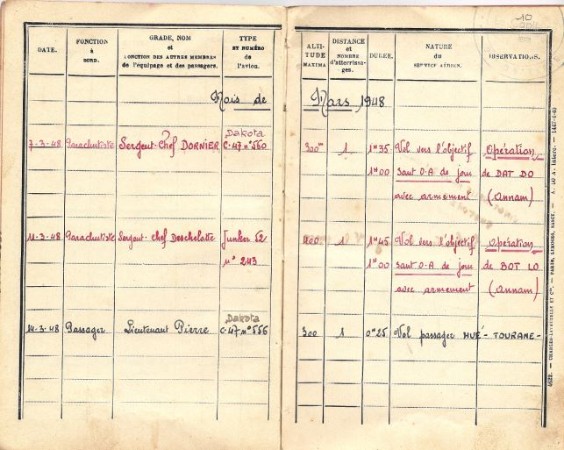 10
DATE.
FONCTION
à
BORD.
GRADE, NOM
et
FONCTION DES AUTRES MEMBRES
de l'équipage et des passagers.
TYPE
ET NUMÉRO
de
l'avion.
ALTI-
TUDE
MAXIMA
DISTANCE
et
NOMBRE
d'atterrissa-
ges.
DURÉE.
NATURE
du
SERVICE AÉRIEN.
OBSERVATIONS.
Mois de Mars 1948
Dakota
7-3-48 Parachutiste Sergent-Chef DORNIER C-47 n° 560 300m 1 1h35 Vol vers l'objectif Opération
1h00 Saut O-A de jour de DAT DO
avec armement (Annam)
11-3-48 Parachutiste Sergent-chef Junker 52 1 1h45 Vol vers l'objectif Opération
n° 243 1h00 Saut O-A de jour de BOT LO
avec armement (Annam)
Dakota
14-3-48 Passager Lieutenant Pierre C-47 n° 556 300 1 0h25 Vol passager HUÉ - TOURANE -